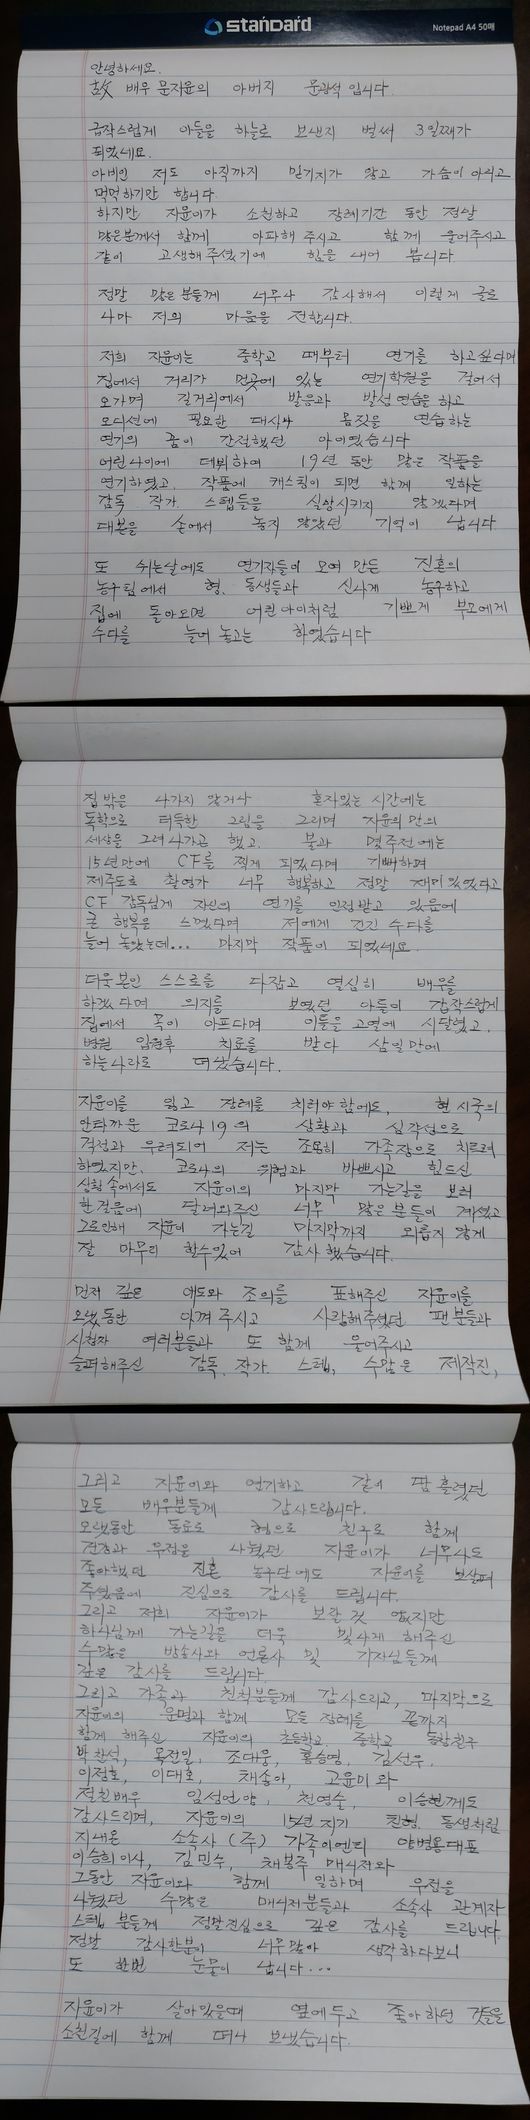 standard
Notepad A4 50매
안녕하세요.
故 배우 문지윤의 아버지 문광석 입니다.
급작스럽게 아들을 하늘로 보낸지 벌써 3일째가
되었네요.
아비인 저도 아직까지 믿기지가 않고 가슴이 아리고
먹먹하기만 합니다.
하지만 지윤이가 소천하고 장례기간 동안 정말
많은분께서 함께 아파해 주시고 함께 울어주시고
같이 고생해 주셨기에 힘을 내어 봅니다
정말 많은 분들께 너무나 감사해서 이렇게 글로
나마 저의 마음을 전합니다.
저희 지윤이는 중학교 때부터 연기를 하고싶다며
집에서 거리가 먼곳에 있는 연기학원을 걸어서
오가며 길거리에서 발음과 발성 연습을 하고
오디션에 필요한 대사나 몸짓을 연습하는
연기의 꿈이 간절했던 아이였습니다
어린나이에 데뷔하여 19년 동안 많은 작품을
연기하였고, 작품에 캐스팅이 되면 함께 일하는
감독 작가 스텝들을 실망시키지 않겠다며
대본을 손에서 놓지 않았던 기억이 납니다
또 쉬는날에도 연기자들이 모여 만든 진혼의
농구팀에서 형, 동생들과 신나게 농구하고
집에 돌아오면 어린아이처럼 기쁘게 부모에게
수다를 늘어 놓고는 하였습니다
집 밖을 나가지 않거나 혼자있는 시간에는
독학으로 터득한 그림을 그리며 지윤의 만의
세상을 그려나가곤 했고. 불과 몇주전에는
15년만에 CF를 찍게 되었다며 기뻐하며
제주도로 촬영가 너무 행복하고 정말 재미있었다고
CF 감독님께 자신의 연기를 인정받고 있음에
큰 행복을 느꼈다며 저에게 긴긴 수다를
늘어 놓았는데... 마지막 작품이 되었네요.
더욱 본인 스스로를 다잡고 열심히 배우를
하겠다며 의지를 보였던 아들이 갑작스럽게
집에서 목이 아프다며 이틀을 고열에 시달렸고,
병원 입원후 치료를 받다 삼일만에
하늘나라로 떠났습니다.
지윤이를 잃고 장례를 치러야 함에도, 현 시국의
안타까운 코로나19의 상황과 심각성으로
걱정과 우려되어 저는 조용히 가족장으로 치르려
하였지만, 코로나의 위험과 바쁘시고 힘드신
상황 속에서도 지윤이의 마지막 가는길을 보러
한걸음에 달려와주신 너무 많은 분들이 계셨고
그로인해 지윤이 가는길 마지막까지 외롭지 않게
잘 마무리 할수있어 감사했습니다.
먼저 깊은 애도와 조의를 표해주신 지윤이를
오랫동안 아껴 주시고 사랑해주셨던 팬분들과
시청자 여러분들과 또 함께 울어주시고
슬퍼해주신 감독, 작가. 스텝, 수많은 제작진,
그리고 지윤이와 연기하고 같이 땀 흘렸던
모든 배우분들께 감사드립니다.
오랫동안 동료로 형으로 친구로 함께
건강과 우정을 나눴던 지윤이가 너무나도
좋아했던 진혼 농구단에도 지윤이를 보살펴
주셨음에 진심으로 감사를 드립니다.
그리고 저희 지윤이가 보잘 것 없지만
하나님께 가는길을 더욱 빛나게 해주신
수많은 방송사와 언론사 및 기자님들께
깊은 감사를 드립니다
그리고 가족과 친척분들께 감사드리고, 마지막으로
지윤이의 운명과 함께 모든 장례를 끝까지
함께 해주신 지윤이의 초등학교. 중학교 동창친구
박찬석, 목전일, 조대웅, 홍승영, 김선우,
이정호, 이대호, 채송아, 고윤미 와
절친배우 임성언양, 천영술, 이승현께도
감사드리며, 지윤이의 15년 지기 친형, 동생처럼
지내온 소속사 (주) 가족이엔티 양병용대표
이승희 이사, 김민수, 채봉주 매니저와
그동안 지윤이와 함께 일하며 우정을
나눴던 수많은 매니저분들과 소속사 관계자
스텝 분들께 정말진심으로 깊은 감사를 드립니다.
정말 감사한분이 너무많아 생각하다보니
또 한번 눈물이 납니다...
지윤이가 살아있을때 옆에두고 좋아하던 것들을
소천길에 함께 떠나 보냈습니다.